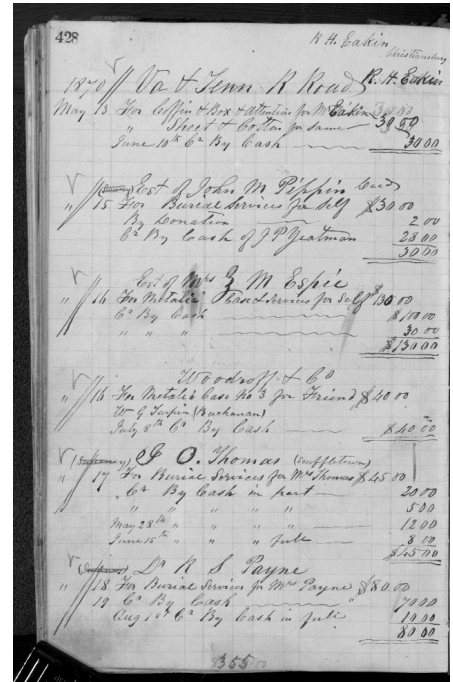 428
R H Eakin
Christiansburg
1870 Va & Tenn R Road R. H. Eakin
May 15 For Coffin & Box & attention for Mr Eakin 30.00
" Sheet & Cotton for same 30 00
June 10th Cr By Cash 30 00
Est of John M Pippin Decd
" 15 For Burial Services for Self $30 00
By Donation 2 00
Cr By Cash of J P Yeatman 28 00
30 00
Est of Mrs M Espie
" 16 For Metalic Case & Services for Self $130 00
Cr By Cash $100 00
" " " 30 00
$130 00
Woodroff & Co
" 16 For Metalic Case No 3 for Friend $40 00
W G Turpin (Buchanan)
July 8th Cr By Cash $40 00
J O. Thomas (Scuffletown)
" 17 For Burial Services for Mrs Thomas $45 00
Cr By Cash in part 20 00
" " " " " 5 00
May 28th " " " " 12 00
June 15th " " " full 8 00
$45 00
Dr R S Payne
" 18 For Burial Services for Mrs Payne $80.00
19 Cr By Cash 70 00
Aug 1st Cr By Cash in full 10 00
80 00
$355 00